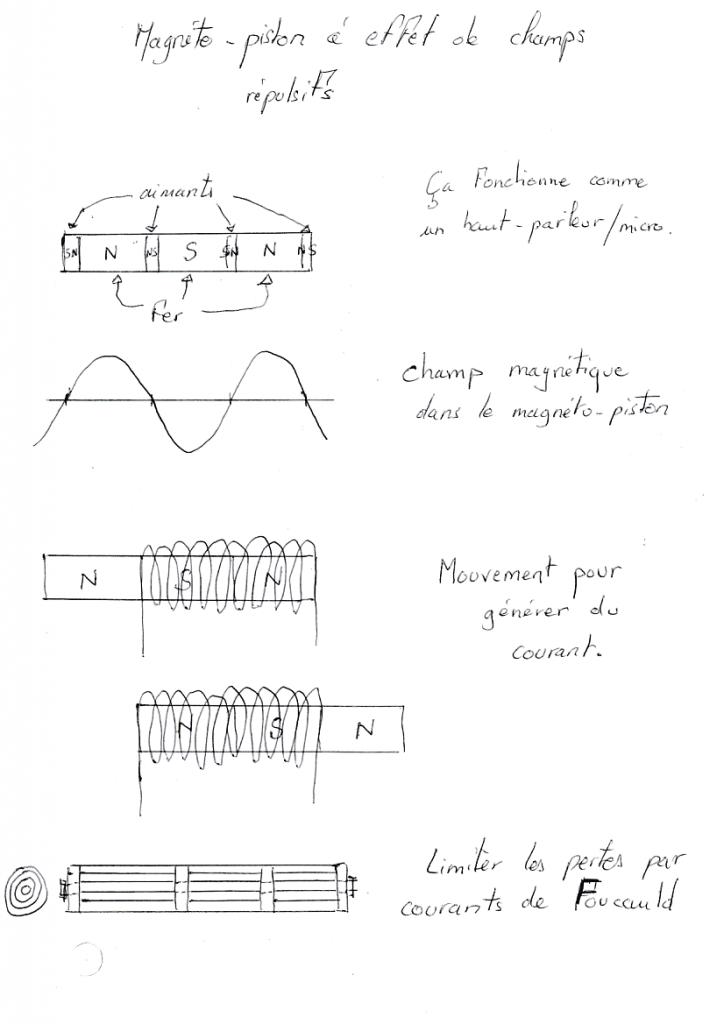 Magnéto-piston à effet de champs
répulsifs
Ça Fonctionne comme
un haut-parleur/micro.
aimants
SN N NS S SN N NS
Fer
champ magnétique
dans le magnéto-piston
N S N
Mouvement pour
générer du
courant.
N S N
Limiter les pertes par
courants de Foucauld